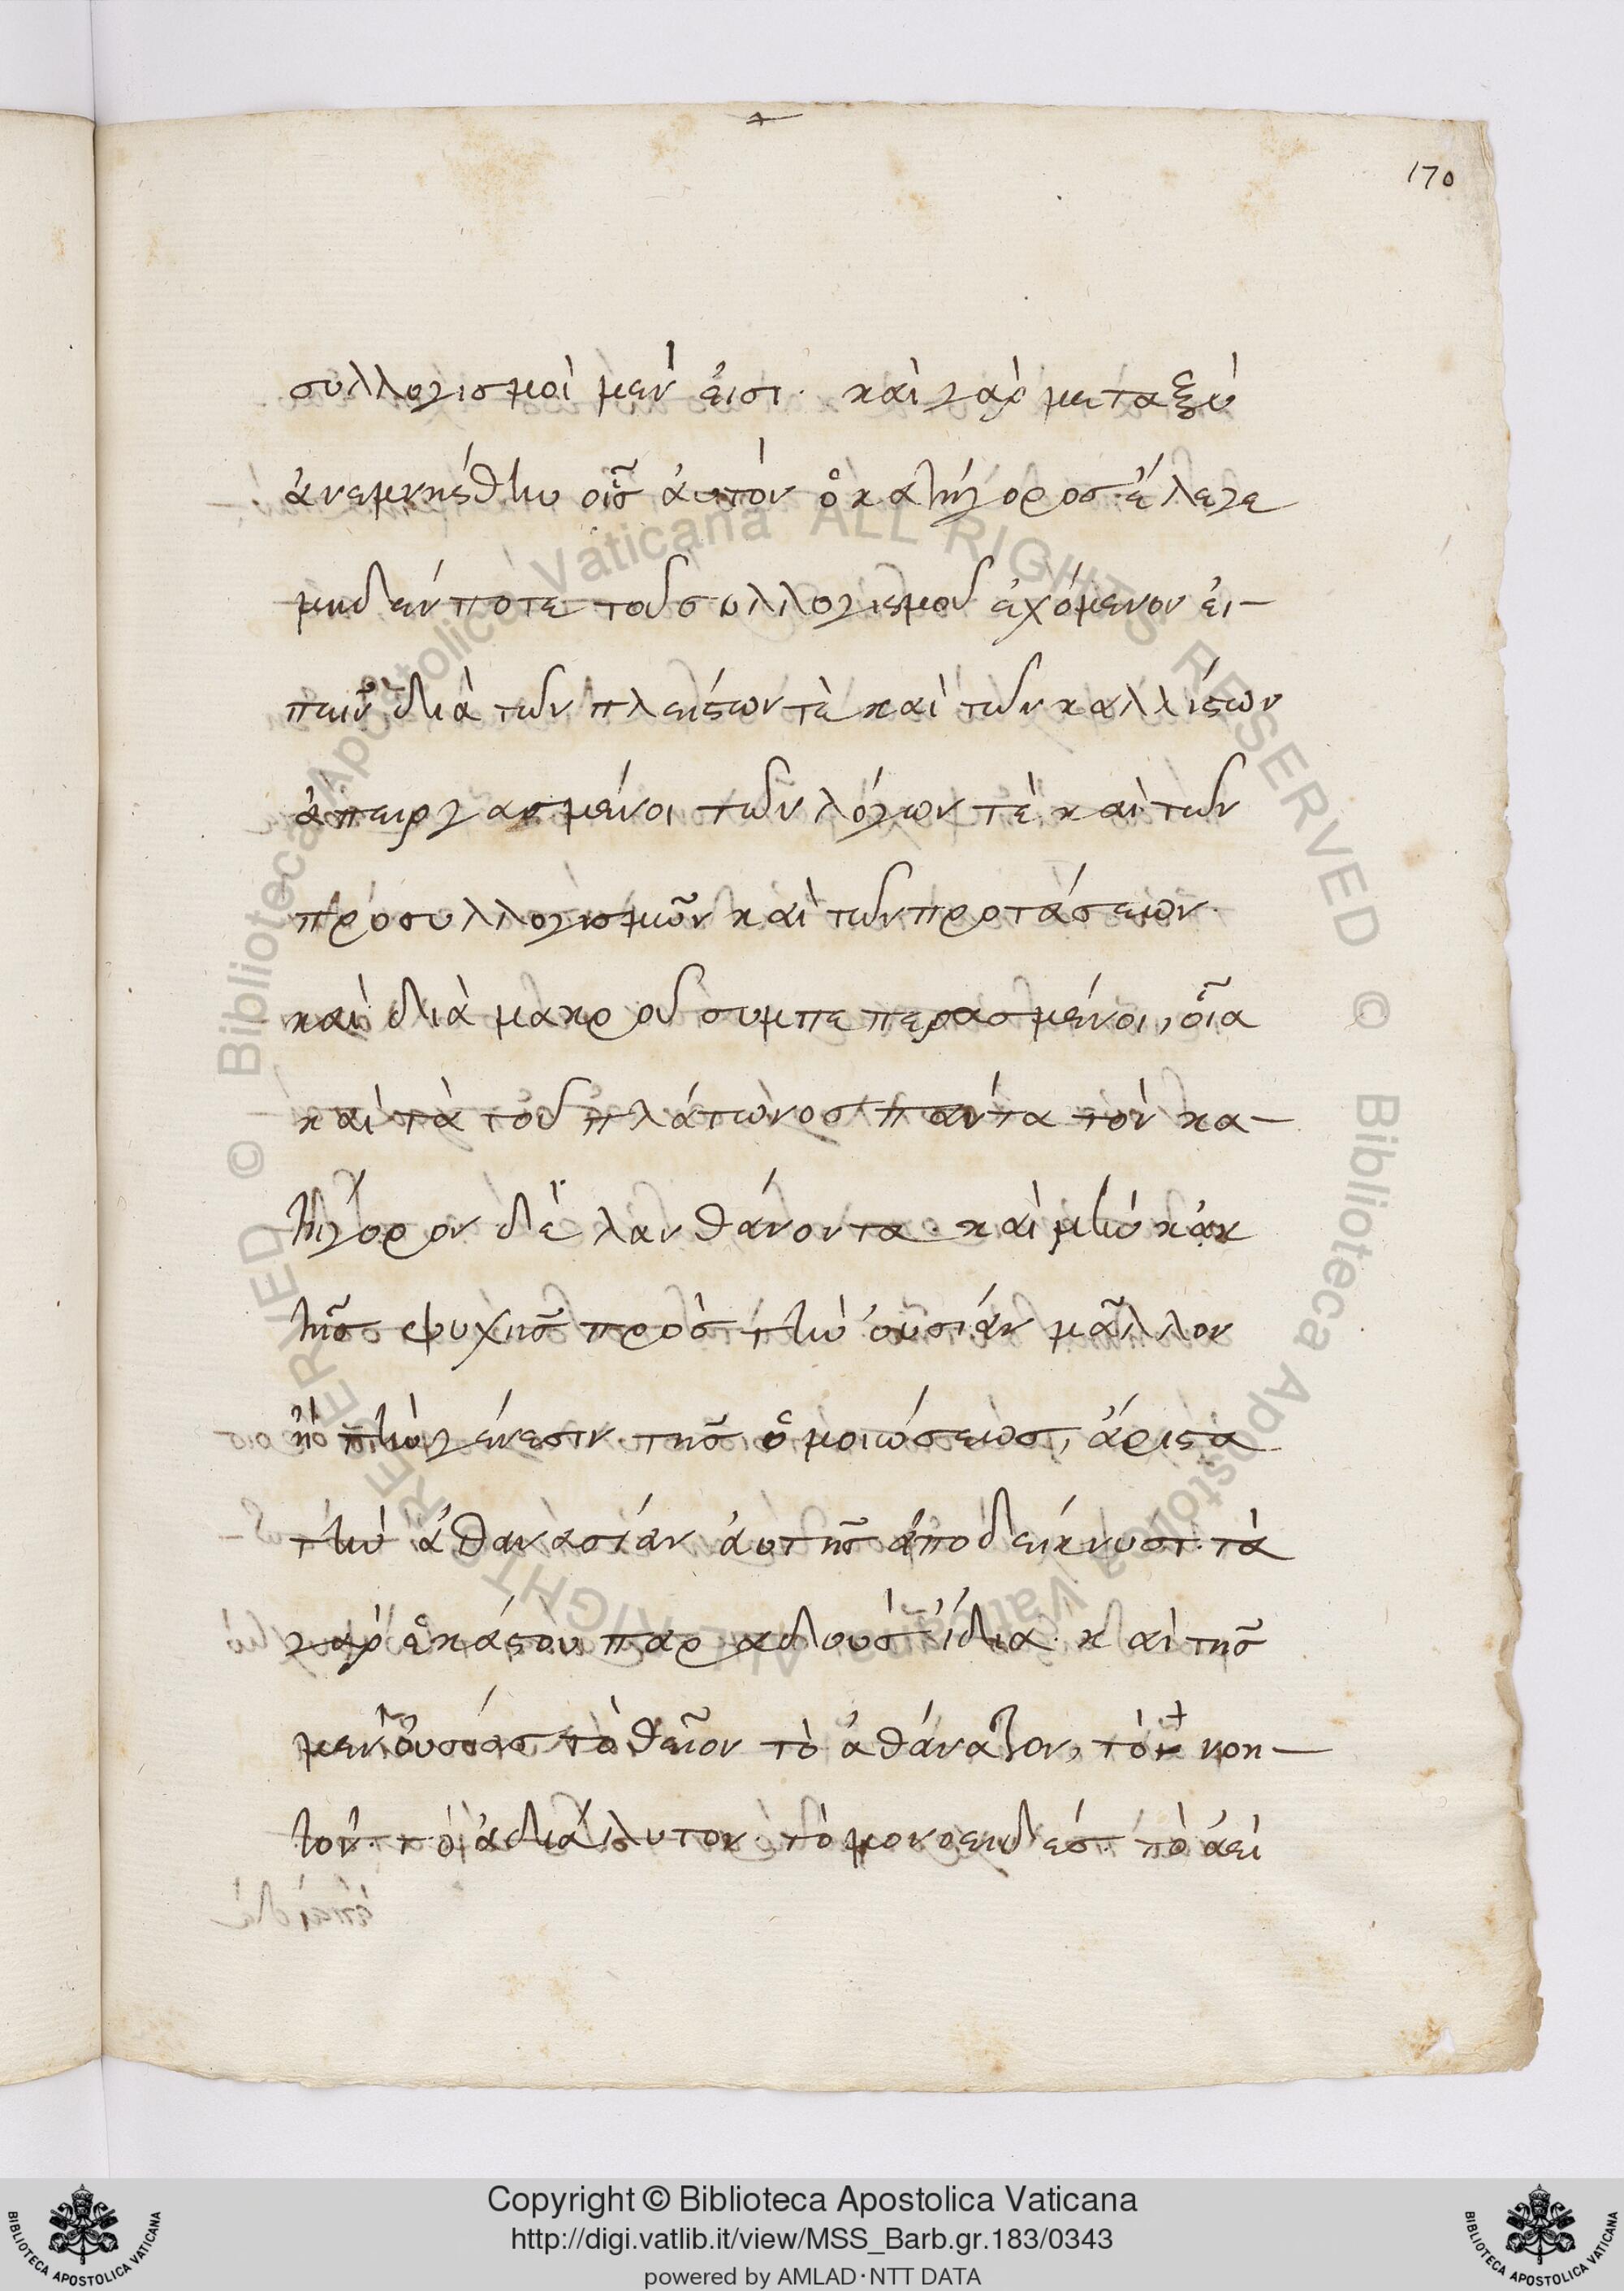 170
συλλογισμοὶ μὲν εἰσι· καὶ γὰρ μεταξὺ
ἀνεμνήσθην οἷς αὐτὸν ὁ κατήγορος ἔλεγε
μηδέν ποτε τοῦ συλλογισμοῦ ἐχόμενον εἰ-
πεῖν, διὰ τῶν πλείστων τὲ καὶ τῶν καλλίστων
ἀπειργασμένοι τῶν λόγων τὲ καὶ τῶν
προσυλλογισμῶν καὶ τῶν προτάσεων·
καὶ διὰ μακροῦ συμπεπερασμένοι, οἷα
καὶ τὰ τοῦ πλάτωνος πάντα τὸν κα-
τήγορον δὲ λανθάνοντα· καὶ μὴν κἀκ
τῆς ψυχῆς πρὸς τὴν οὐσίαν μᾶλλον
ἢ τὴν γένεσιν τῆς ὁμοιώσεως, ἄριστα
τὴν ἀθανασίαν αὐτῆς ἀποδείκνυσι· τὰ
γὰρ ἑκάστου παραδοὺς ἴδια· καὶ τῆς
μὲν οὐσίας τὸ θεῖον τὸ ἀθάνατον, τὸ νοη-
τόν· τὸ ἀδιάλυτον τὸ μονοειδές· τὸ ἀεὶ
Copyright © Biblioteca Apostolica Vaticana
http://digi.vatlib.it/view/MSS_Barb.gr.183/0343
powered by AMLAD·NTT DATA
BIBLIOTECA APOSTOLICA VATICANA
BIBLIOTECA APOSTOLICA VATICANA
© Biblioteca Apostolica Vaticana ALL RIGHTS RESERVED © Biblioteca Apostolica Vaticana ALL RIGHTS RESERVED